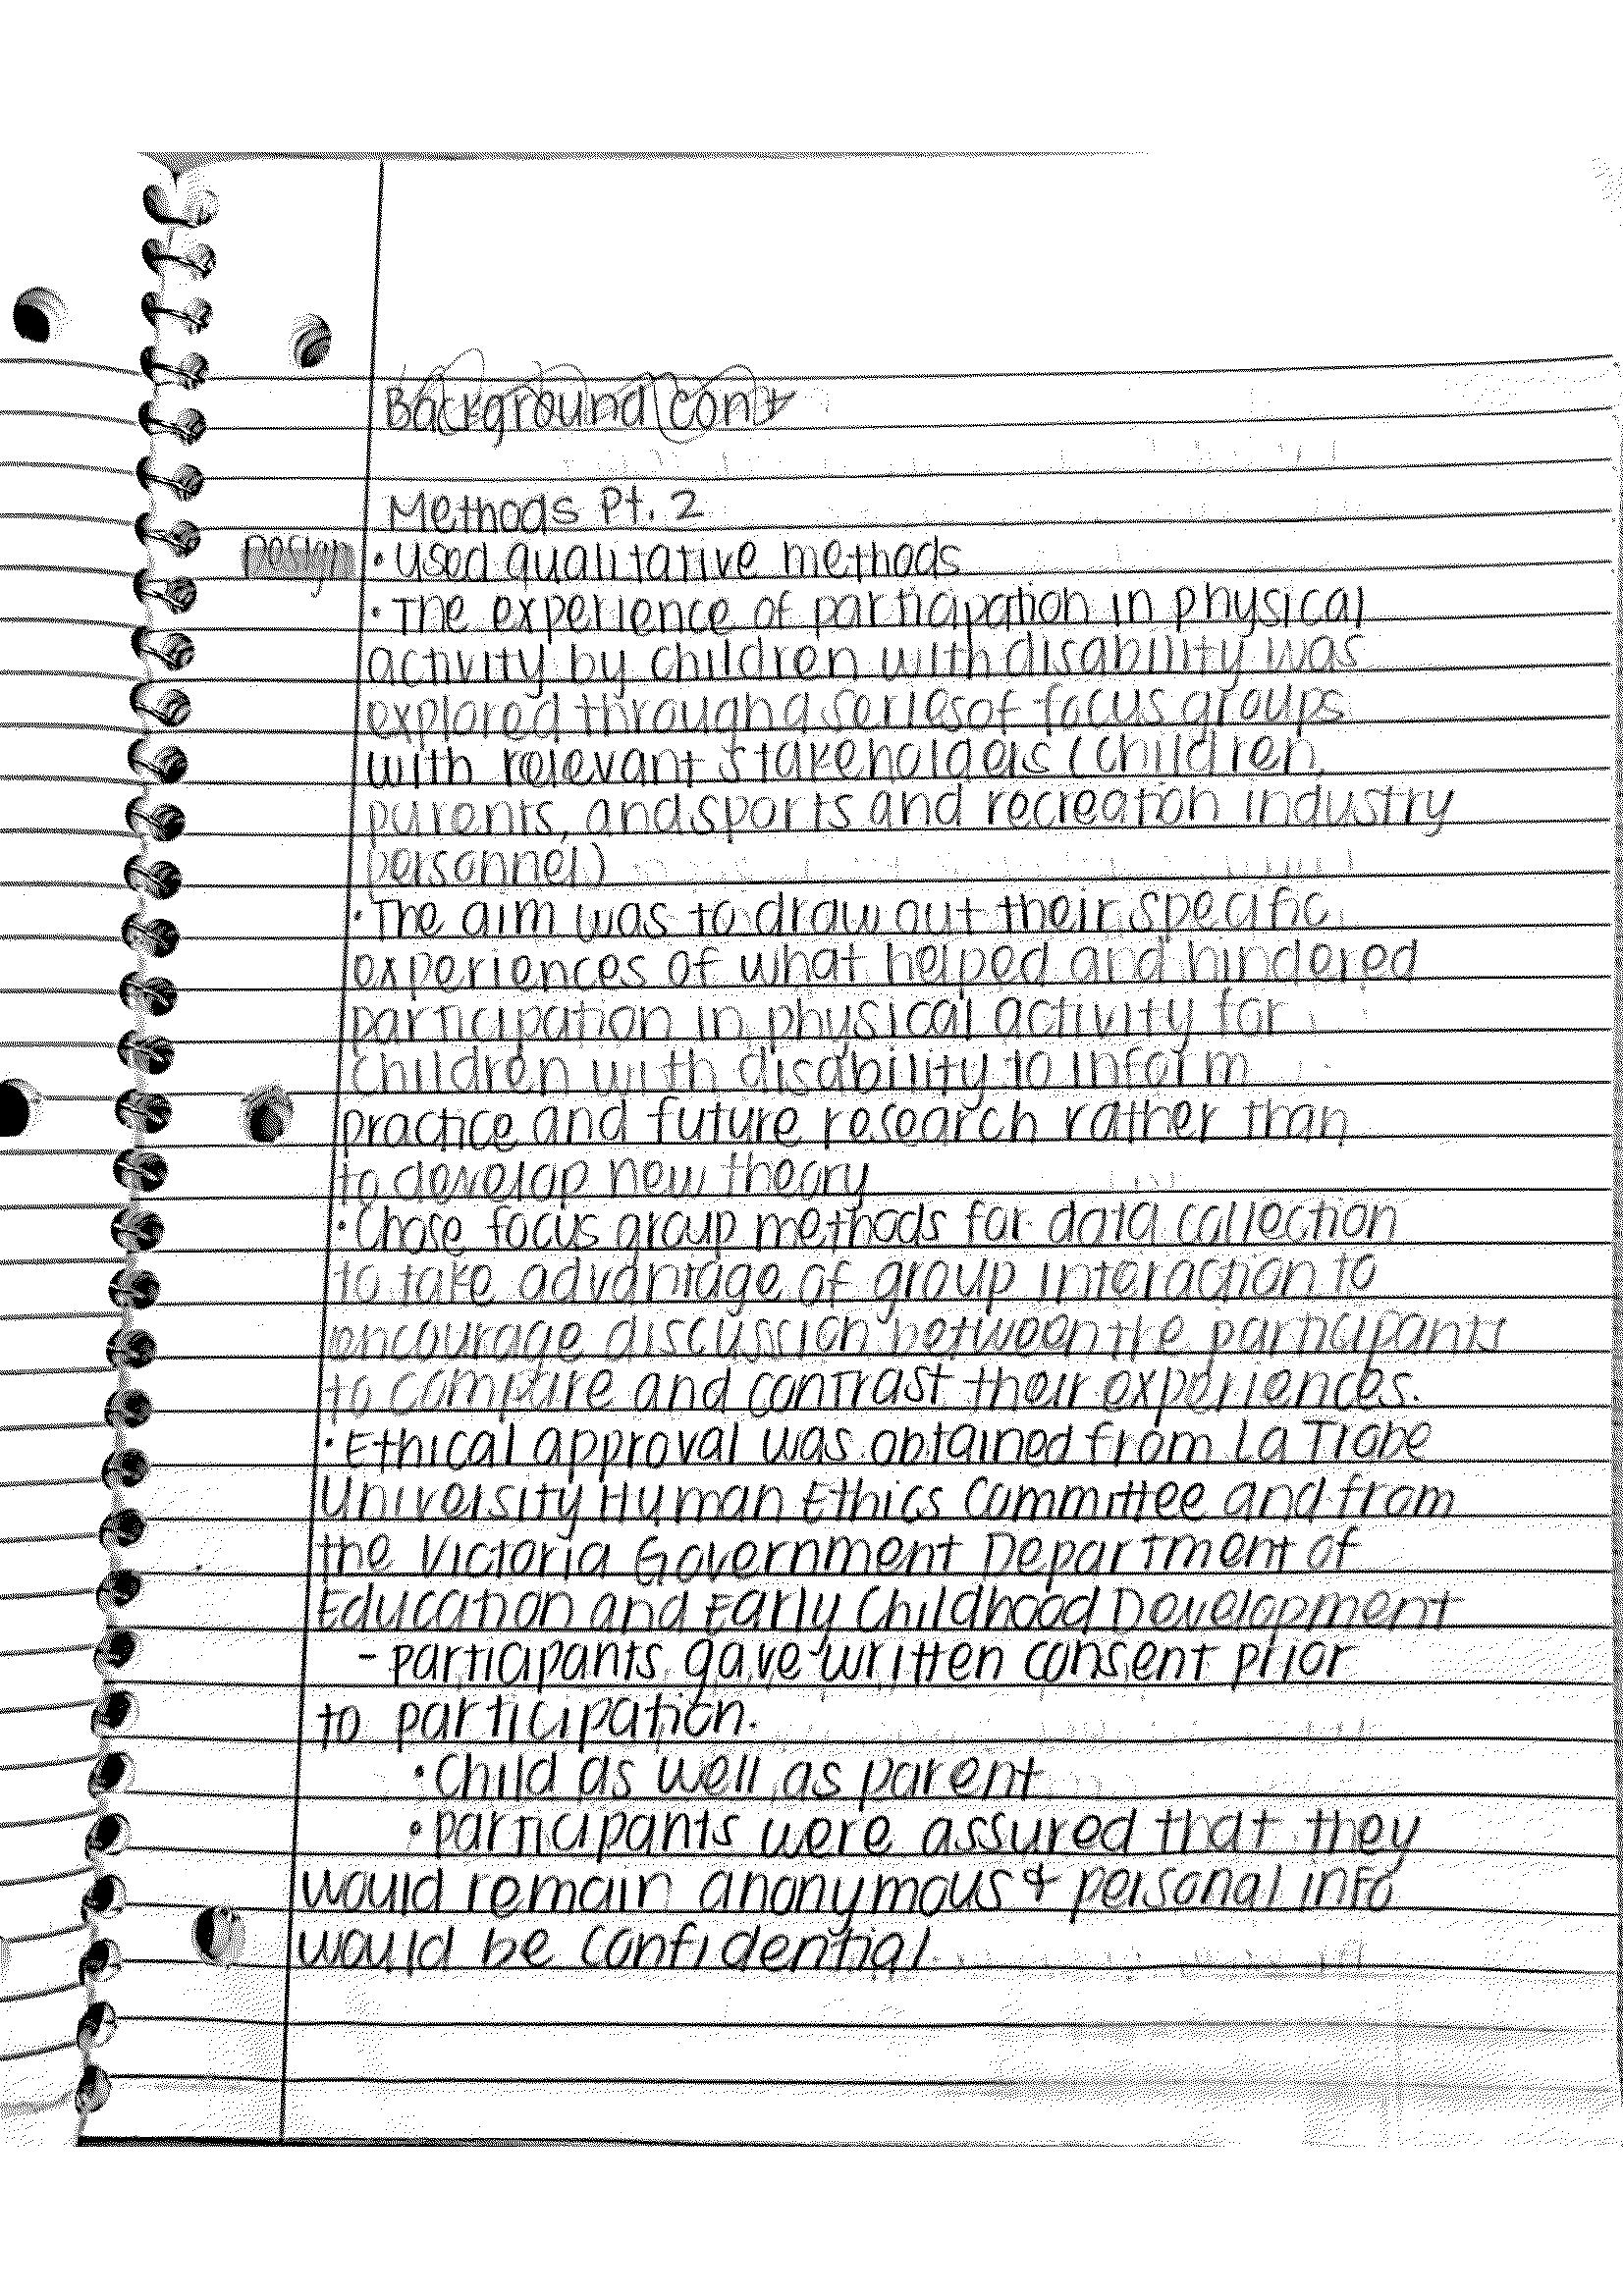 Background cont
Methods Pt. 2
Design • Used qualitative methods
• The experience of participation in physical
activity by children with disability was
explored through a series of focus groups
with relevant stakeholders (children,
parents, and sports and recreation industry
personnel)
• The aim was to draw out their specific
experiences of what helped and hindered
participation in physical activity for
children with disability to inform
practice and future research rather than
to develop new theory
• Chose focus group methods for data collection
to take advantage of group interaction to
encourage discussion between the participants
to compare and contrast their experiences.
• Ethical approval was obtained from La Trobe
University Human Ethics Committee and from
the Victoria Government Department of
Education and Early Childhood Development
- participants gave written consent prior
to participation.
• Child as well as parent
• participants were assured that they
would remain anonymous & personal info
would be confidential.